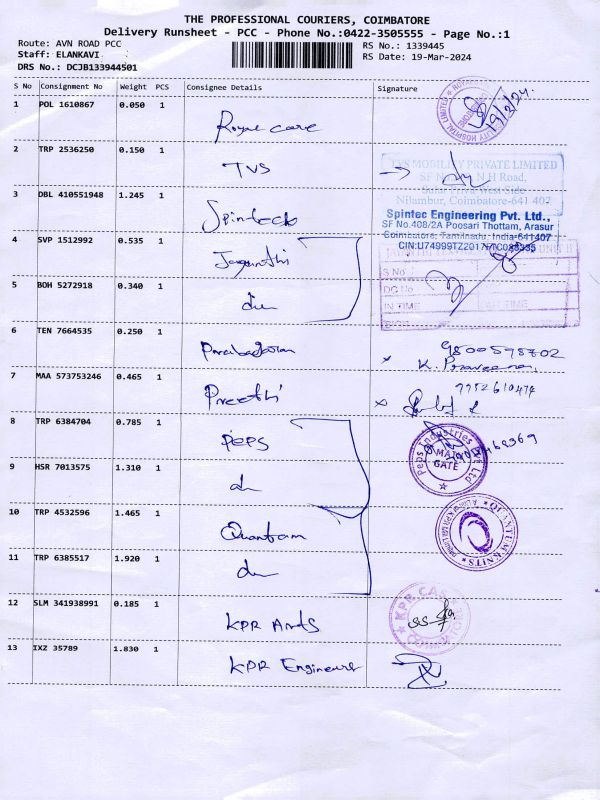 THE PROFESSIONAL COURIERS, COIMBATORE
Delivery Runsheet - PCC - Phone No.:0422-3505555 - Page No.:1
Route: AVN ROAD PCC
RS No.: 1339445
Staff: ELANKAVI
RS Date: 19-Mar-2024
DRS No.: DCJB133944501
S No Consignment No Weight PCS Consignee Details Signature
1 POL 1610867 0.050 1 Royal care 19/3/24
2 TRP 2536250 0.150 1 TVS
TVS MOBILITY PRIVATE LIMITED
N H Road,
Nilambur, Coimbatore-641 407
3 DBL 410551948 1.245 1 Spinteck
Spintec Engineering Pvt. Ltd.,
SF No.408/2A Poosari Thottam, Arasur
Coimbatore, Tamilnadu, India-641407
4 SVP 1512992 0.535 1 Jayanthi
S No
DC No
IN TIME
5 BOH 5272918 0.340 1 do
6 TEN 7664535 0.250 1 Prabakaran
7 MAA 573753246 0.465 1 Preethi
8 TRP 6384704 0.785 1 PEPS
Peps Industries Pvt Ltd
MAIN GATE
9 HSR 7013575 1.310 1 do
10 TRP 4532596 1.465 1 Quantam
QUANTUM KNITS
11 TRP 6385517 1.920 1 do
12 SLM 341938991 0.185 1 KPR Arts
KPR
13 IXZ 35789 1.830 1 KPR Engineers